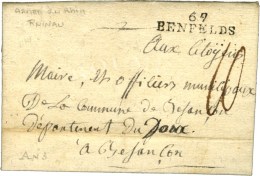 ARMEE DU RHIN
RHINAU
67
BENFELDS
Aux Citoyens
Maire, et officiers municipaux
De La Commune de Besançon
département du Doux
à Besançon
AN 3